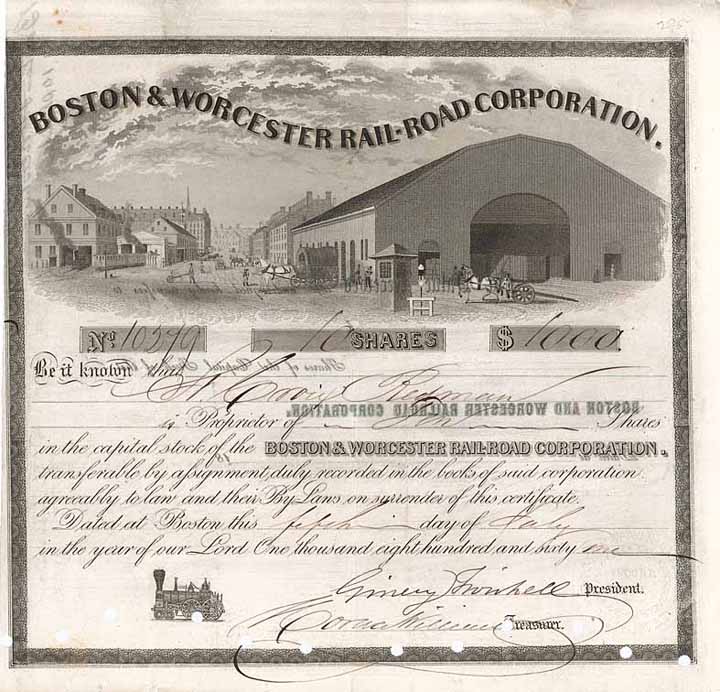 295
BOSTON & WORCESTER RAIL-ROAD CORPORATION.
No. 10579 10 SHARES $ 1000.
Be it known that
St. Croix Redman
is Proprietor of Ten Shares
BOSTON AND WORCESTER RAILROAD CORPORATION.
in the capital stock of the BOSTON & WORCESTER RAIL-ROAD CORPORATION,
transferable by assignment, duly recorded in the books of said corporation
agreeably to law and their By-Laws, on surrender of this certificate.
Dated at Boston this fifth day of July
in the year of our Lord One thousand eight hundred and sixty one
Ginery Twichell President.
Treasurer.